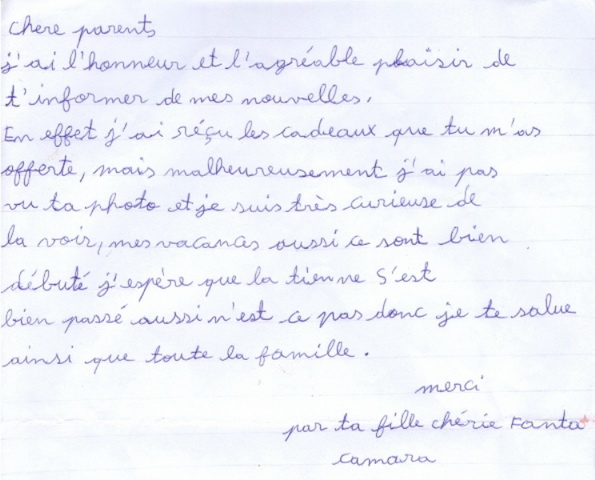 Chere parents
j'ai l'honneur et l'agréable plaisir de
t'informer de mes nouvelles.
En effet j'ai réçu les cadeaux que tu m'as
offerte, mais malheureusement j'ai pas
vu ta photo et je suis très curieuse de
la voir, mes vacances aussi ce sont bien
débuté j'espère que la tienne S'est
bien passé aussi n'est ce pas donc je te salue
ainsi que toute la famille.
merci
par ta fille chérie Fanta
camara